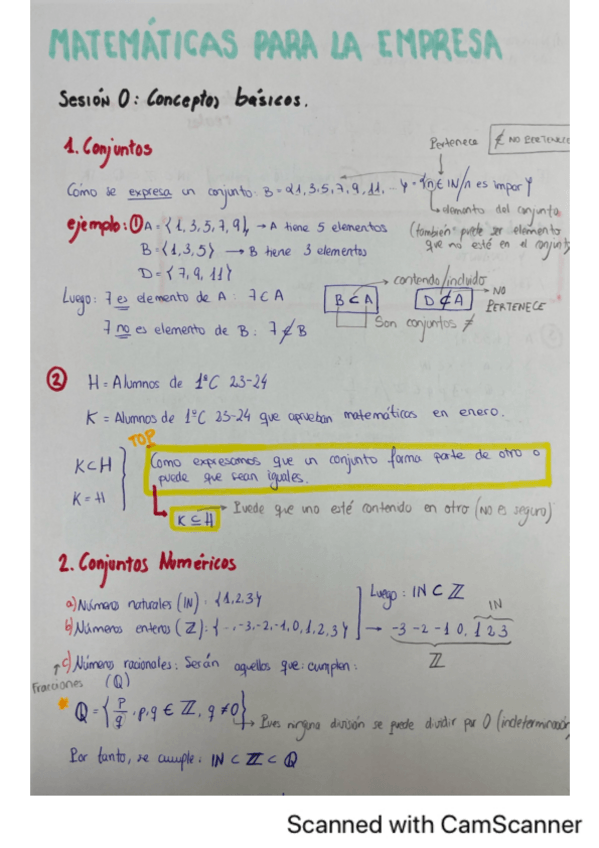 MATEMÁTICAS PARA LA EMPRESA
SESIÓN 0: Conceptos básicos.
1. Conjuntos
Pertenece
∉ NO PERTENECE
Cómo se expresa un conjunto: B = {1,3,5,7,9,11,...} = {n ∈ IN/n es impar}
elemento del conjunto
(también puede ser elemento
que no esté en el conjunto
ejemplo: ① A = {1,3,5,7,9} → A tiene 5 elementos
B = {1,3,5} → B tiene 3 elementos
D = {7,9,11}
contenido/incluido
Luego: 7 es elemento de A: 7 ∈ A
B ⊂ A
D ⊄ A
NO PERTENECE
Son conjuntos ≠
7 no es elemento de B: 7 ∉ B
② H = Alumnos de 1ºC 23-24
K = Alumnos de 1ºC 23-24 que aprueban matemáticas en enero.
TOP
K ⊂ H
K = H
Como expresamos que un conjunto forma parte de otro o
puede que sean iguales.
K ⊆ H
Puede que uno esté contenido en otro (no es seguro)
2. Conjuntos Numéricos
a) Números naturales (IN): {1,2,3}
Luego: IN ⊂ ℤ
IN
b) Números enteros (ℤ): {...-3,-2,-1,0,1,2,3} → -3 -2 -1 0, 1 2 3
ℤ
c) Números racionales: Serán aquellos que cumplen:
Fracciones (Q)
Q = {p/q : p,q ∈ ℤ, q ≠ 0}
Pues ninguna división se puede dividir por 0 (indeterminación
Por tanto, se cumple: IN ⊂ ℤ ⊂ Q
Scanned with CamScanner